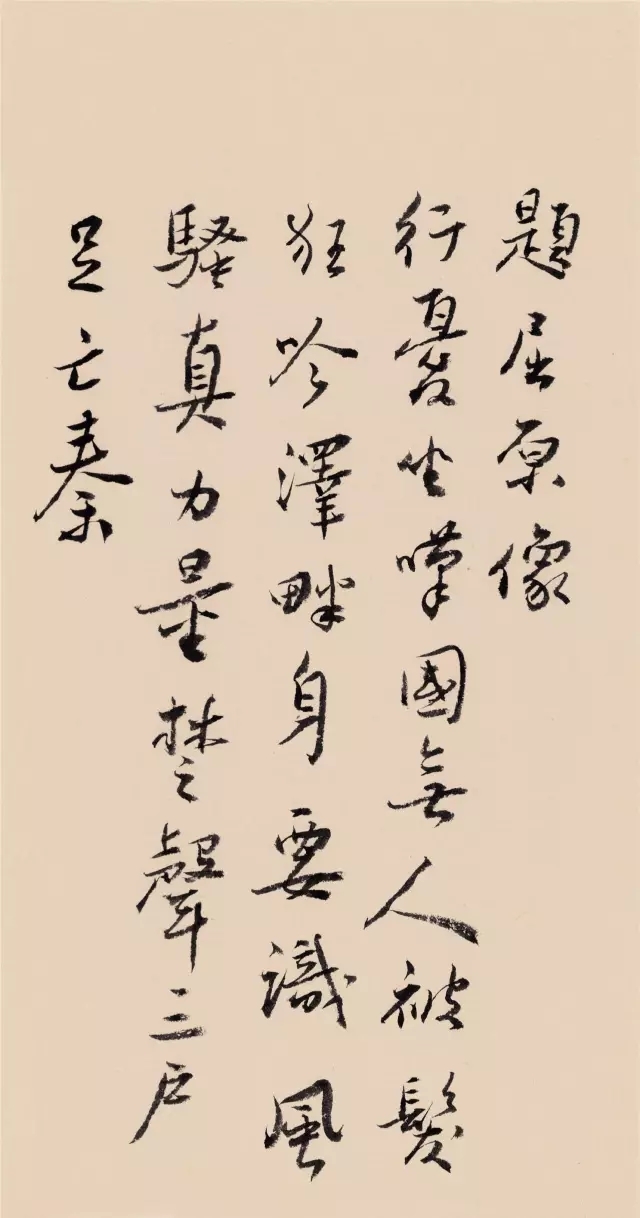 題屈原像
行憂坐嘆國無人被髮
狂吟澤畔身要識風
騷真力量楚聲三戶
足亡秦